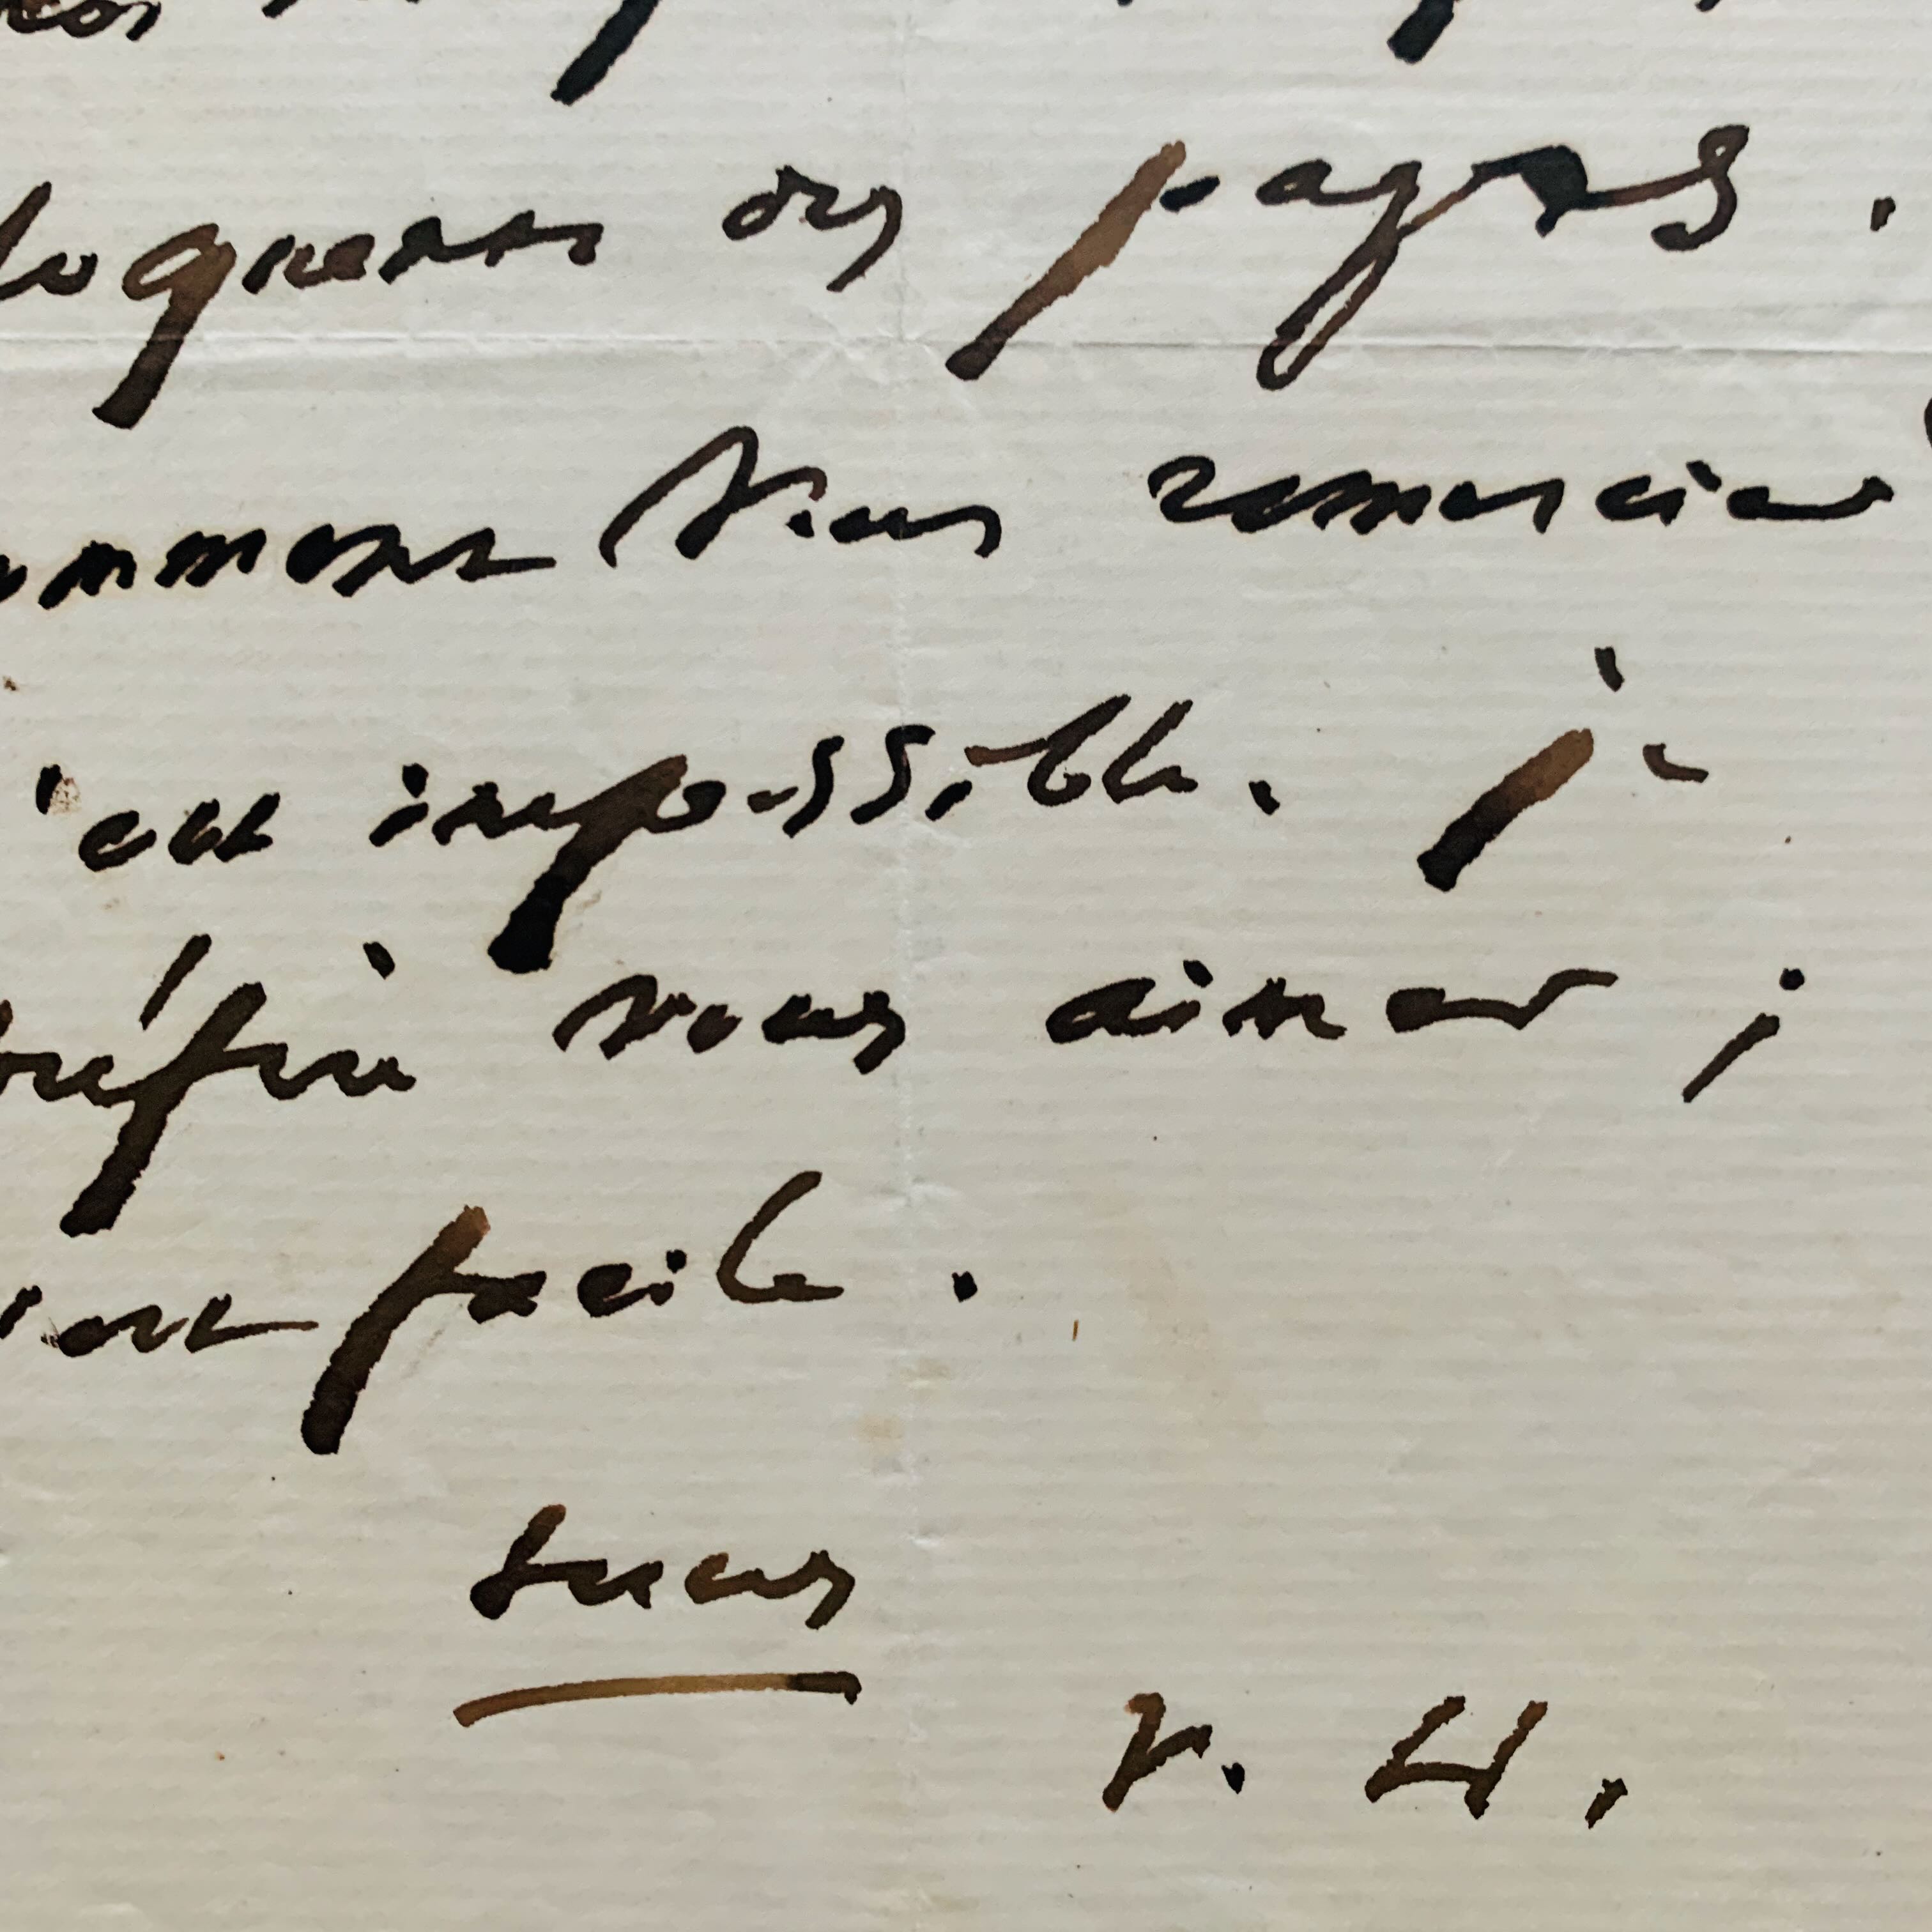 loquentes pages.
comment vous remercier
c'est impossible. je
préfère vous aimer ;
c'est facile.
tuus
V. H.